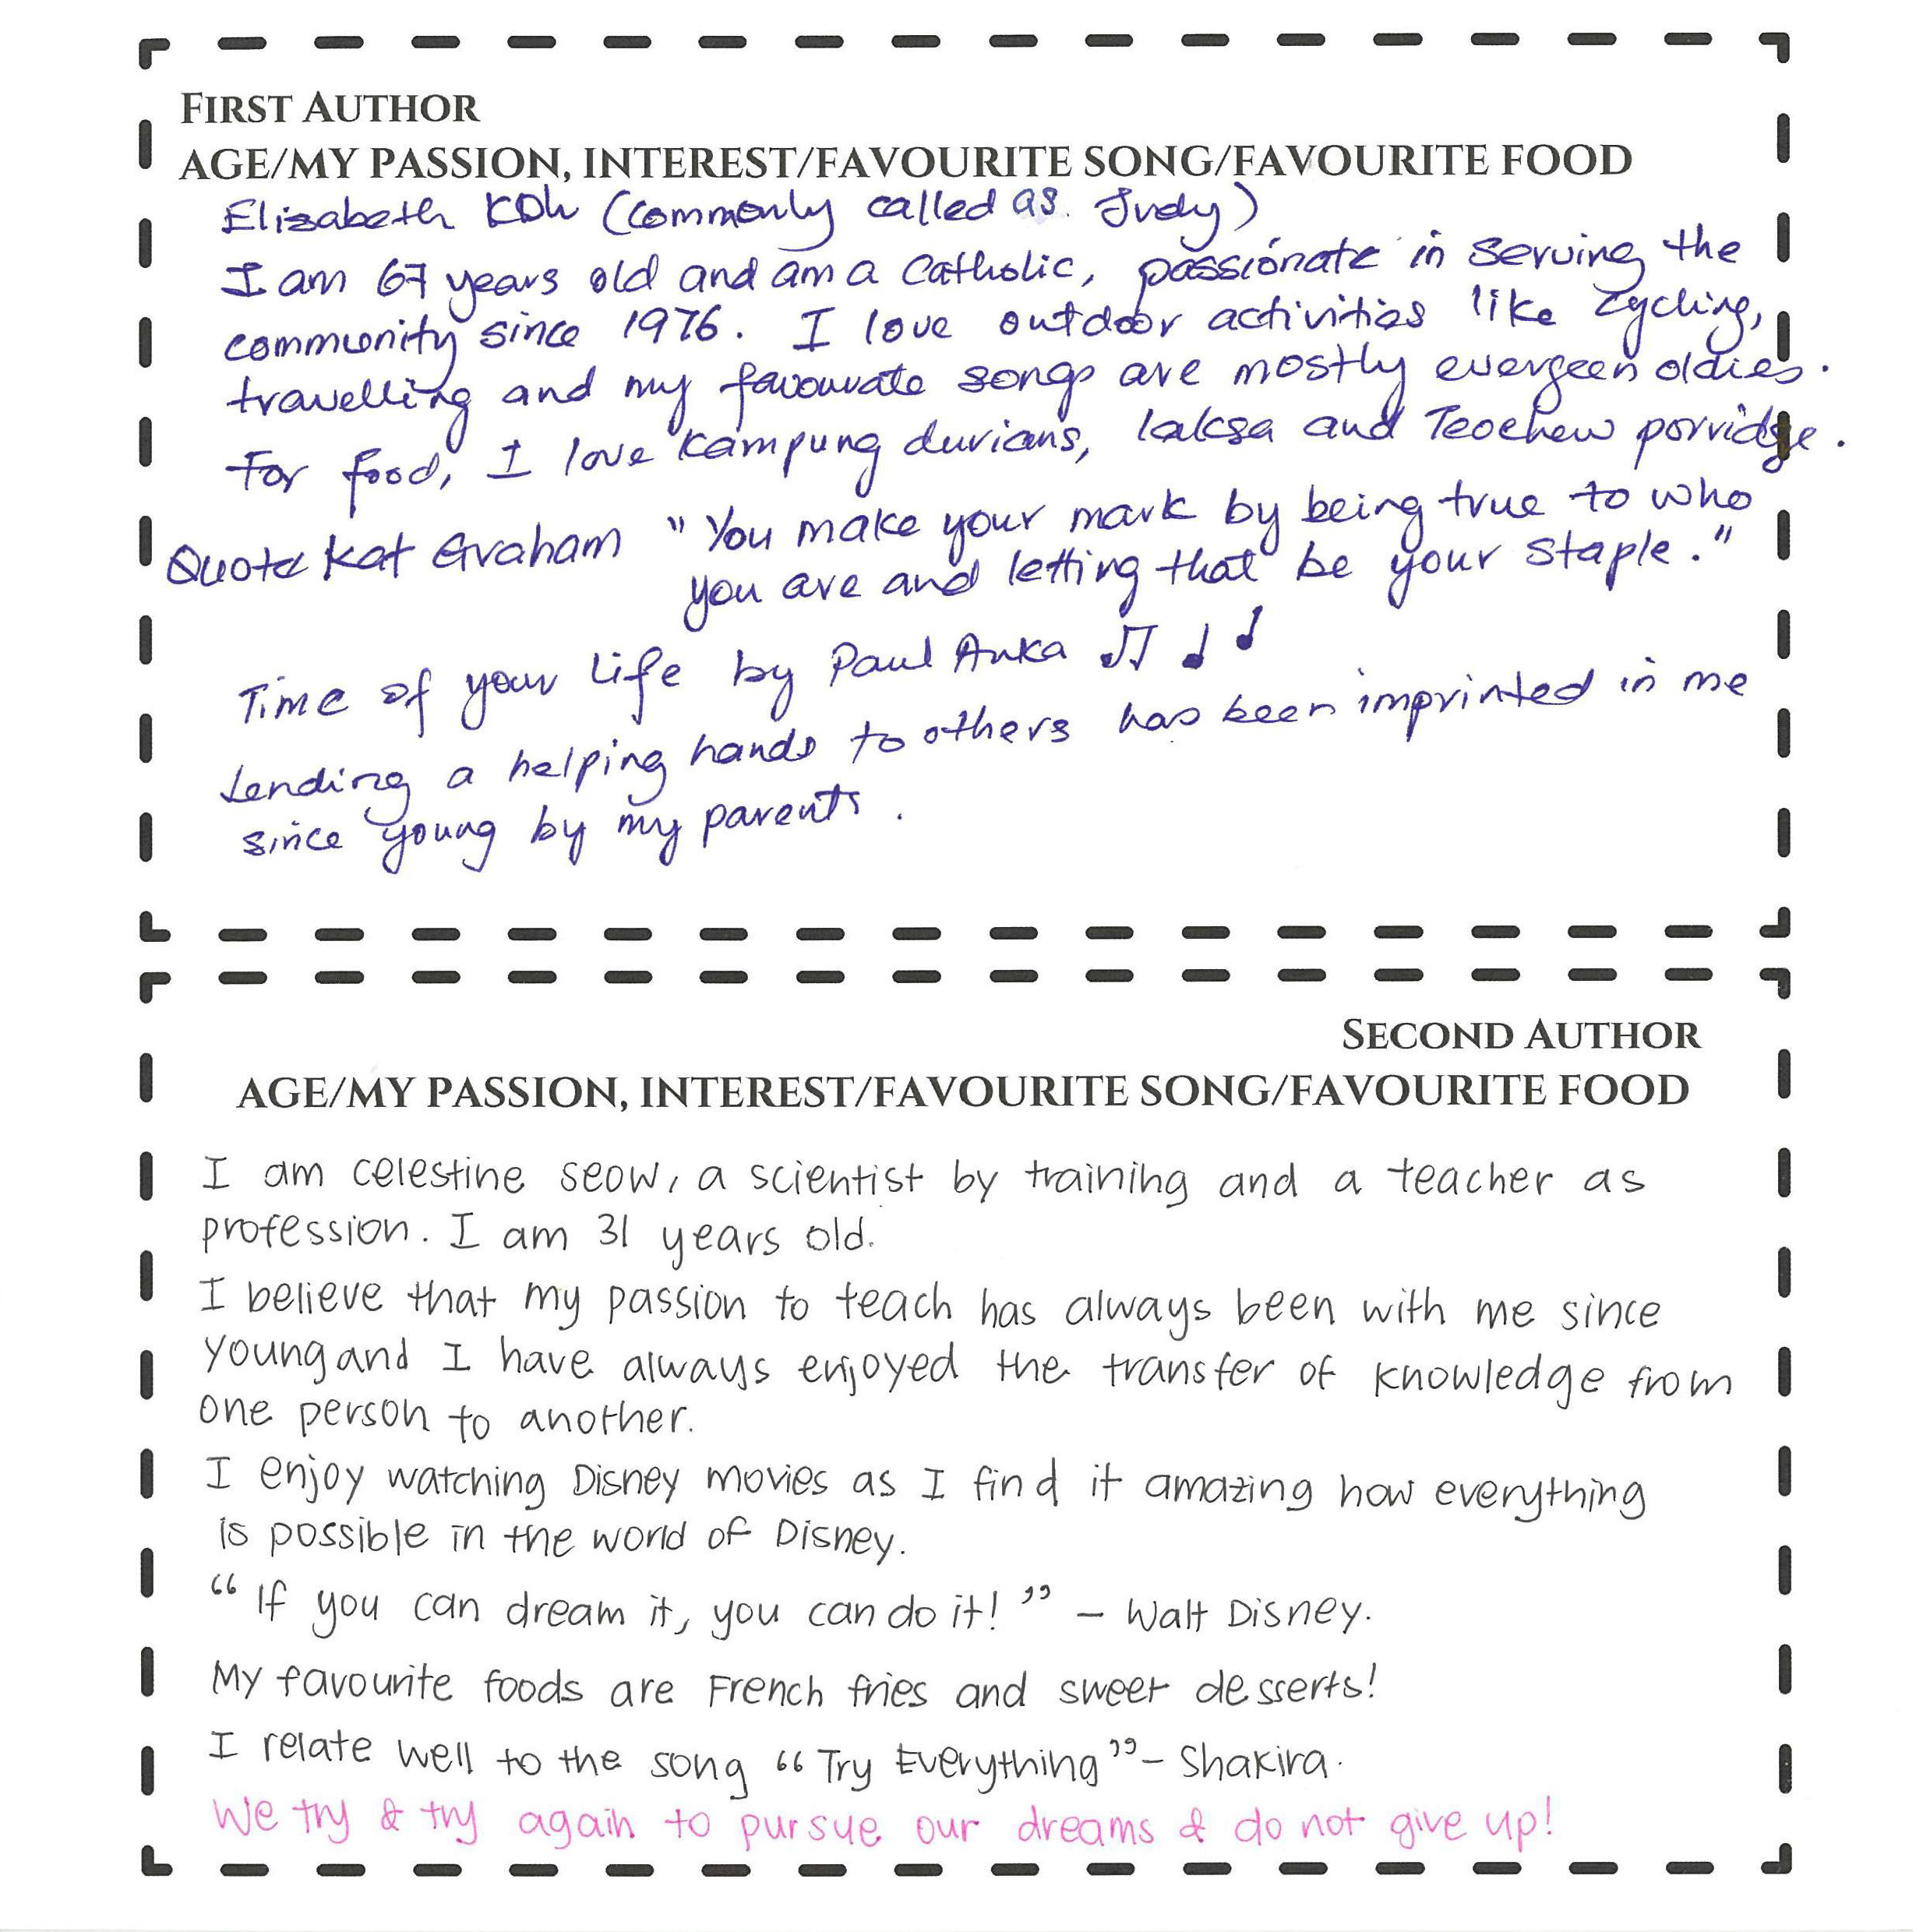 FIRST AUTHOR
AGE/MY PASSION, INTEREST/FAVOURITE SONG/FAVOURITE FOOD
Elizabeth Koh (commonly called as Judy)
I am 67 years old and am a Catholic, passionate in serving the
community since 1976. I love outdoor activities like cycling,
travelling and my favouvate songs are mostly evergeen oldies.
For food, I love kampung durians, laksa and Teochew porridge.
Quote Kat Graham "You make your mark by being true to who
you are and letting that be your staple."
Time of your Life by Paul Anka ♫ ♩ ♩
Lending a helping hands to others has been imprinted in me
since young by my parents.
SECOND AUTHOR
AGE/MY PASSION, INTEREST/FAVOURITE SONG/FAVOURITE FOOD
I am Celestine Seow, a scientist by training and a teacher as
profession. I am 31 years old.
I believe that my passion to teach has always been with me since
young and I have always enjoyed the transfer of knowledge from
one person to another.
I enjoy watching Disney movies as I find it amazing how everything
is possible in the world of Disney.
"If you can dream it, you can do it!" – Walt Disney.
My favourite foods are French fries and sweet desserts!
I relate well to the song "Try Everything" – Shakira.
We try & try again to pursue our dreams & do not give up!